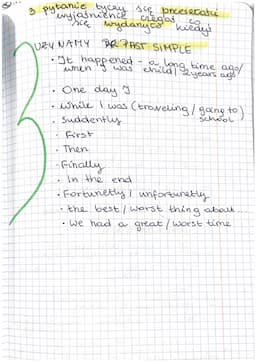 3 pytanie tyczy się przeszłości
wyjaśnienie czegoś co
się wydarzyło kiedyś
UŻYWAMY PAST SIMPLE
• It happened - a long time ago/
when I was child / years ago
• One day I
• While I was (traveling / going to)
school
• Suddently
• First
• Then
• Finally
• In the end
• Fortunetly / unfortunetly
• the best / worst thing about...
• We had a great / worst time